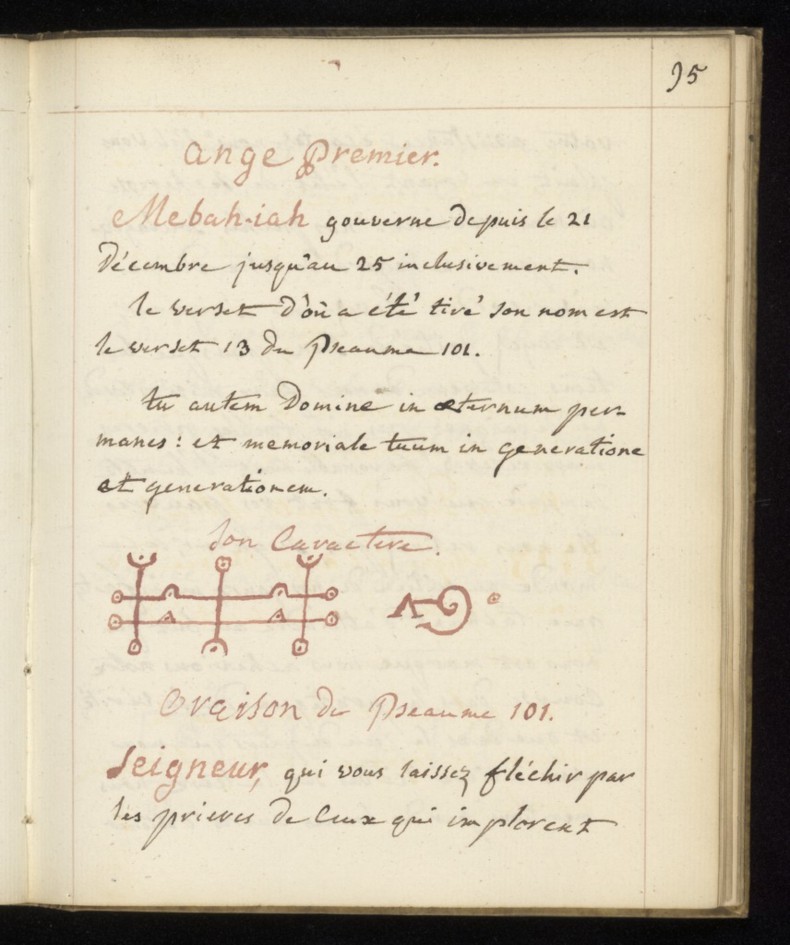 95
Ange Premier.
Mebah-iah gouverne depuis le 21
Décembre jusqu'au 25 inclusivement.
le verset d'où a été tiré son nom est
le verset 13 du Pseaume 101.
tu autem Domine in æternum per-
manes: et memoriale tuum in generatione
et generationem.
Son Caractere.
Oraison du Pseaume 101.
Seigneur, qui vous laissez fléchir par
les prieres de Ceux qui implorent